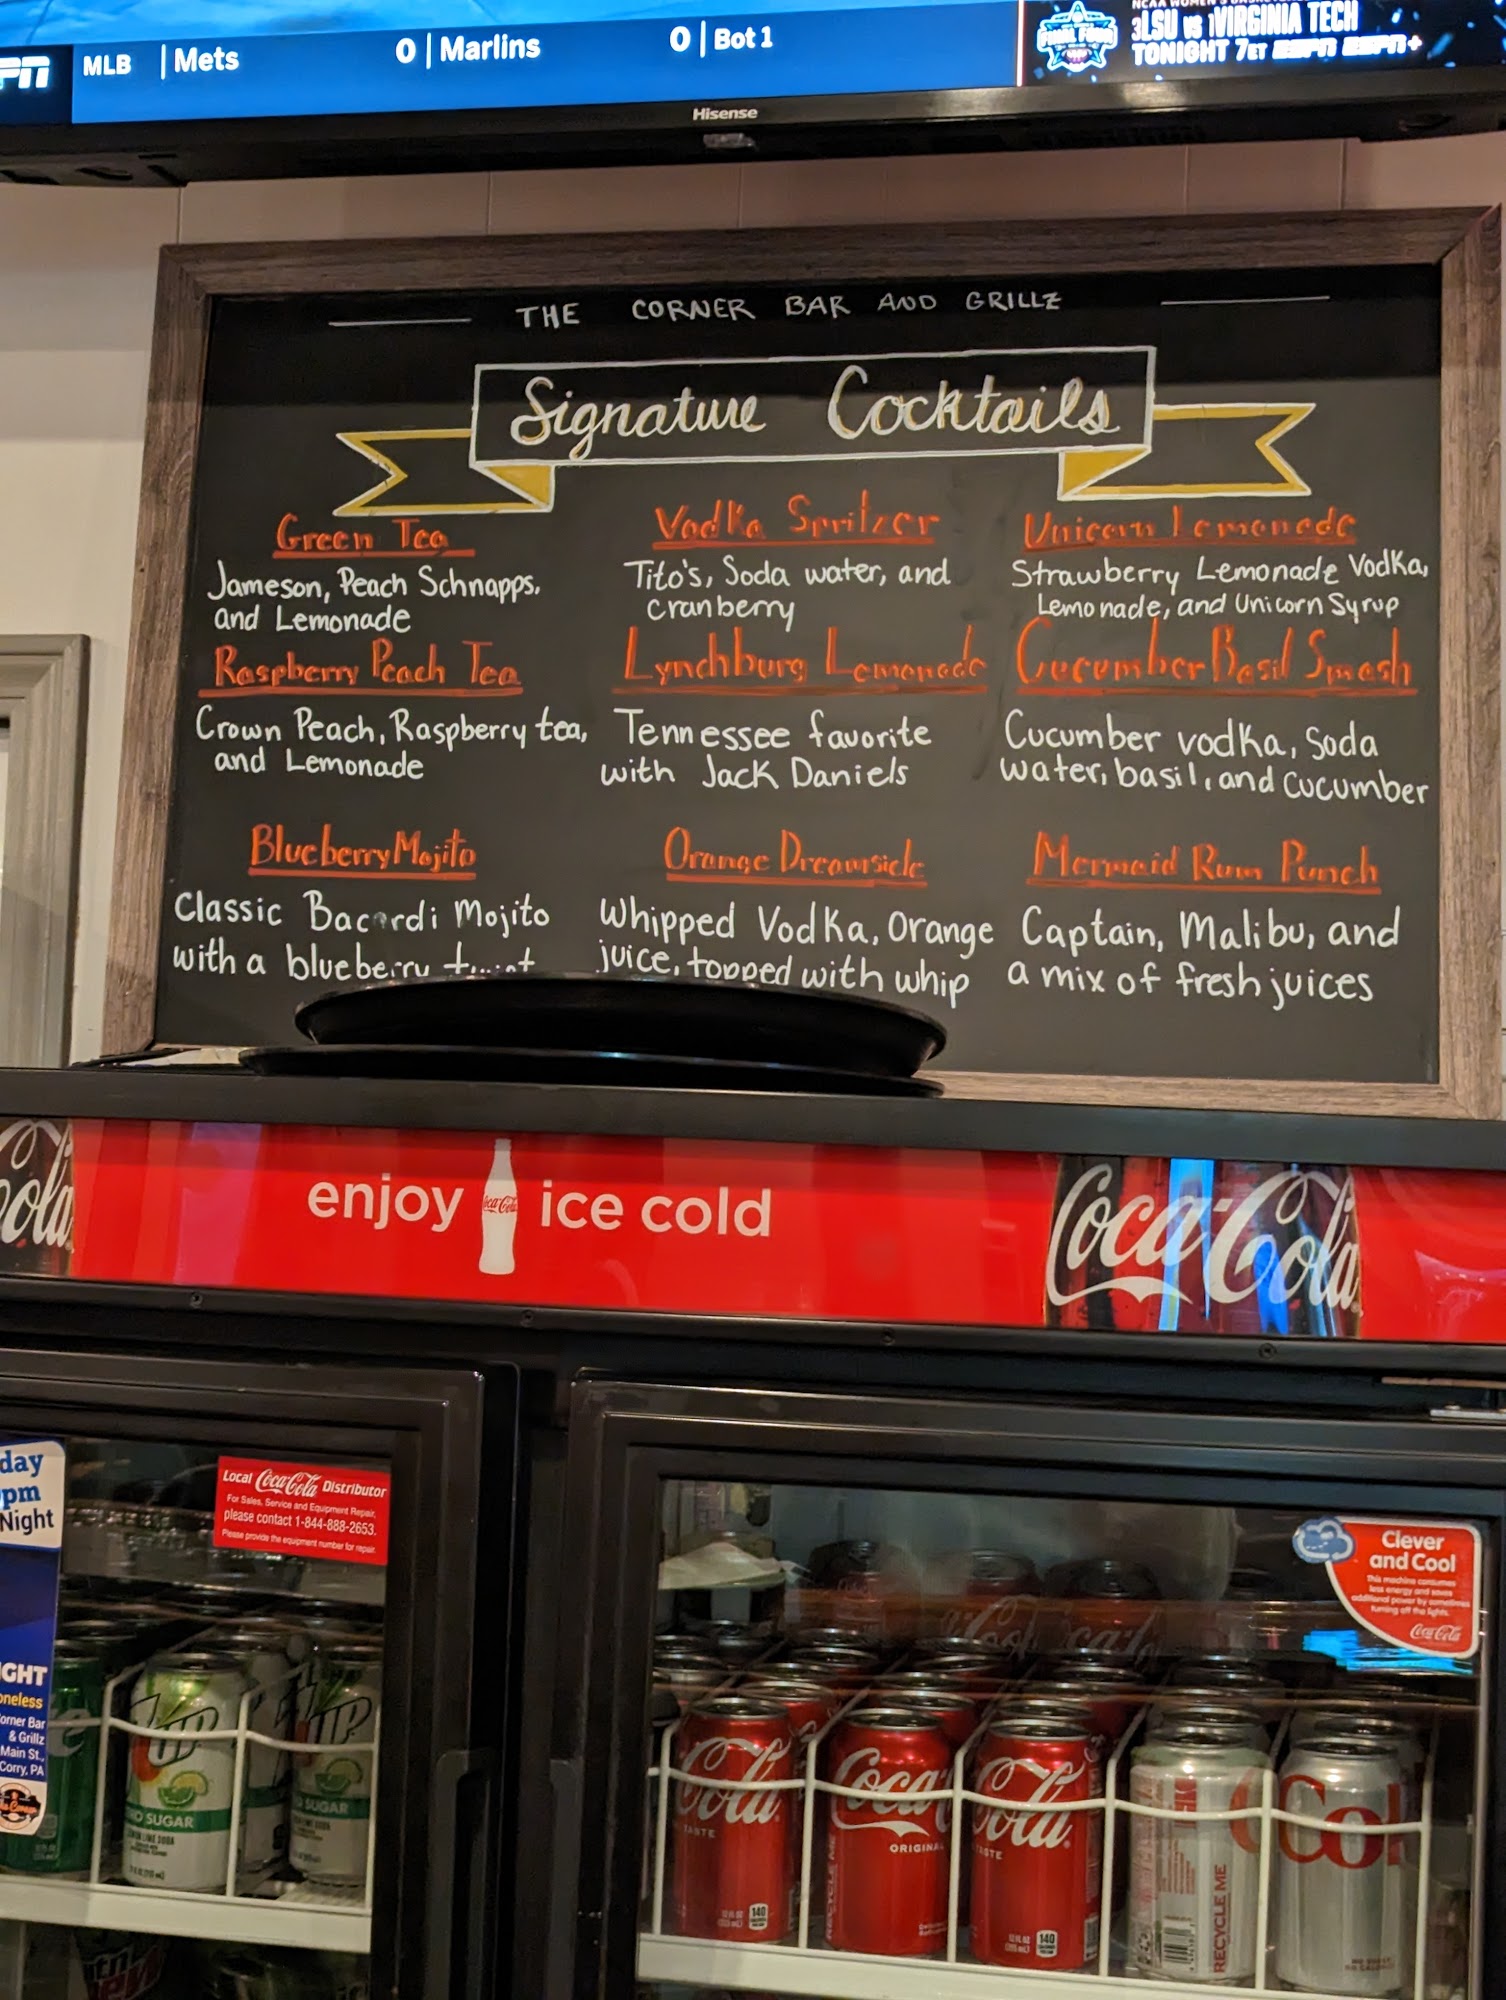 MLB | Mets 0 | Marlins 0 | Bot 1
3LSU vs 1VIRGINIA TECH
TONIGHT 7ET ESPN ESPN+
Hisense
THE CORNER BAR AND GRILLZ
Signature Cocktails
Green Tea
Jameson, Peach Schnapps,
and Lemonade
Vodka Spritzer
Tito's, Soda water, and
cranberry
Unicorn Lemonade
Strawberry Lemonade Vodka,
Lemonade, and Unicorn Syrup
Raspberry Peach Tea
Crown Peach, Raspberry tea,
and Lemonade
Lynchburg Lemonade
Tennessee favorite
with Jack Daniels
Cucumber Basil Smash
Cucumber vodka, Soda
water, basil, and cucumber
Blueberry Mojito
Classic Bacardi Mojito
with a blueberry twist
Orange Dreamsicle
Whipped Vodka, Orange
juice, topped with whip
Mermaid Rum Punch
Captain, Malibu, and
a mix of fresh juices
Cola
enjoy Coca-Cola ice cold
Coca-Cola
day
pm
Night
Local Coca-Cola Distributor
For Sales, Service and Equipment Repair,
please contact 1-844-888-2653.
Please provide the equipment number for repair.
Clever
and Cool
This machine consumes
less energy and saves
additional power by sometimes
turning off the lights.
Coca-Cola
IGHT
oneless
orner Bar
& Grillz
Main St.,
Corry, PA
UP
O SUGAR
UP
O SUGAR
Cola
TASTE
140
Coca
ORIGINAL
RECYCLE ME
Cola
TASTE
140
RECYCLE ME
Co